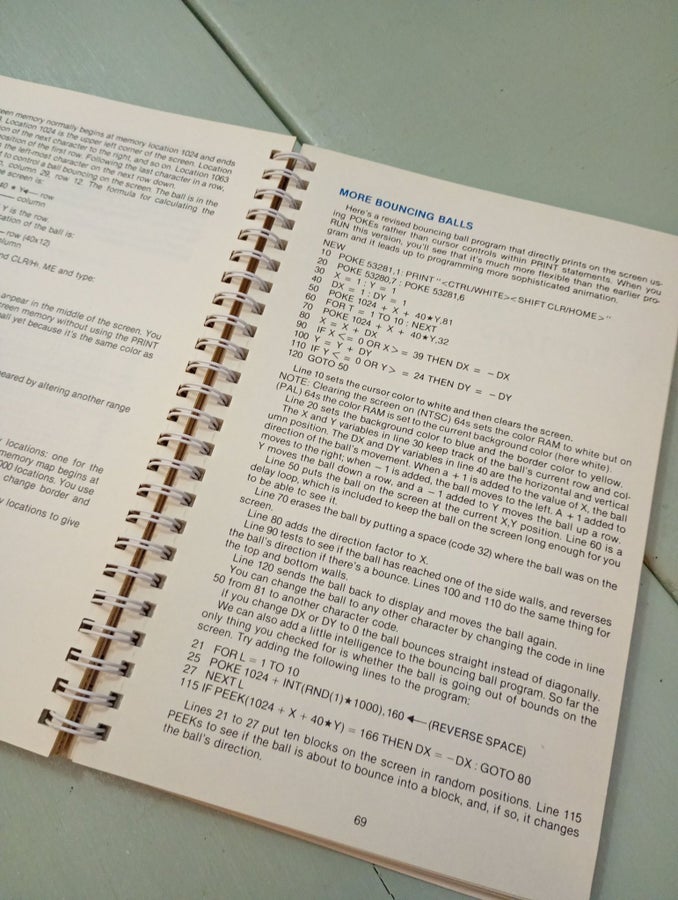 een memory normally begins at memory location 1024 and ends
Location 1024 is the upper left corner of the screen. Location
ion of the next character to the right, and so on. Location 1063
osition of the first row. Following the last character in a row,
the left-most character on the next row down.
t to control a ball bouncing on the screen. The ball is in the
, column 29, row 12. The formula for calculating the
e screen is:
40 ★ Y— row
column
Y is the row.
cation of the ball is:
row (40x12)
lumn
nd CLR/H, ME and type:
appear in the middle of the screen. You
reen memory without using the PRINT
all yet because it's the same color as
peared by altering another range
locations: one for the
memory map begins at
000 locations. You use
change border and
y locations to give
MORE BOUNCING BALLS
Here's a revised bouncing ball program that directly prints on the screen us-
ing POKEs rather than cursor controls within PRINT statements. When you
RUN this version, you'll see that it's much more flexible than the earlier pro-
gram and it leads up to programming more sophisticated animation.
NEW
10 POKE 53281,1: PRINT "<CTRL/WHITE><SHIFT CLR/HOME>"
20 POKE 53280,7 : POKE 53281,6
30 X = 1 : Y = 1
40 DX = 1 : DY = 1
50 POKE 1024 + X + 40★Y,81
60 FOR T = 1 TO 10 : NEXT
70 POKE 1024 + X + 40★Y,32
80 X = X + DX
90 IF X< = 0 OR X> = 39 THEN DX = – DX
100 Y = Y + DY
110 IF Y< = 0 OR Y> = 24 THEN DY = – DY
120 GOTO 50
Line 10 sets the cursor color to white and then clears the screen.
NOTE: Clearing the screen on (NTSC) 64s sets the color RAM to white but on
(PAL) 64s the color RAM is set to the current background color (here white).
Line 20 sets the background color to blue and the border color to yellow.
The X and Y variables in line 30 keep track of the ball's current row and col-
umn position. The DX and DY variables in line 40 are the horizontal and vertical
direction of the ball's movement. When a + 1 is added to the value of X, the ball
moves to the right; when – 1 is added, the ball moves to the left. A + 1 added to
Y moves the ball down a row, and a – 1 added to Y moves the ball up a row.
Line 50 puts the ball on the screen at the current X,Y position. Line 60 is a
delay loop, which is included to keep the ball on the screen long enough for you
to be able to see it.
Line 70 erases the ball by putting a space (code 32) where the ball was on the
screen.
Line 80 adds the direction factor to X.
Line 90 tests to see if the ball has reached one of the side walls, and reverses
the ball's direction if there's a bounce. Lines 100 and 110 do the same thing for
the top and bottom walls.
Line 120 sends the ball back to display and moves the ball again.
You can change the ball to any other character by changing the code in line
50 from 81 to another character code.
If you change DX or DY to 0 the ball bounces straight instead of diagonally.
We can also add a little intelligence to the bouncing ball program. So far the
only thing you checked for is whether the ball is going out of bounds on the
screen. Try adding the following lines to the program:
21 FOR L = 1 TO 10
25 POKE 1024 + INT(RND(1)★1000),160 ◄— (REVERSE SPACE)
27 NEXT L
115 IF PEEK(1024 + X + 40★Y) = 166 THEN DX = –DX : GOTO 80
Lines 21 to 27 put ten blocks on the screen in random positions. Line 115
PEEKs to see if the ball is about to bounce into a block, and, if so, it changes
the ball's direction.
69